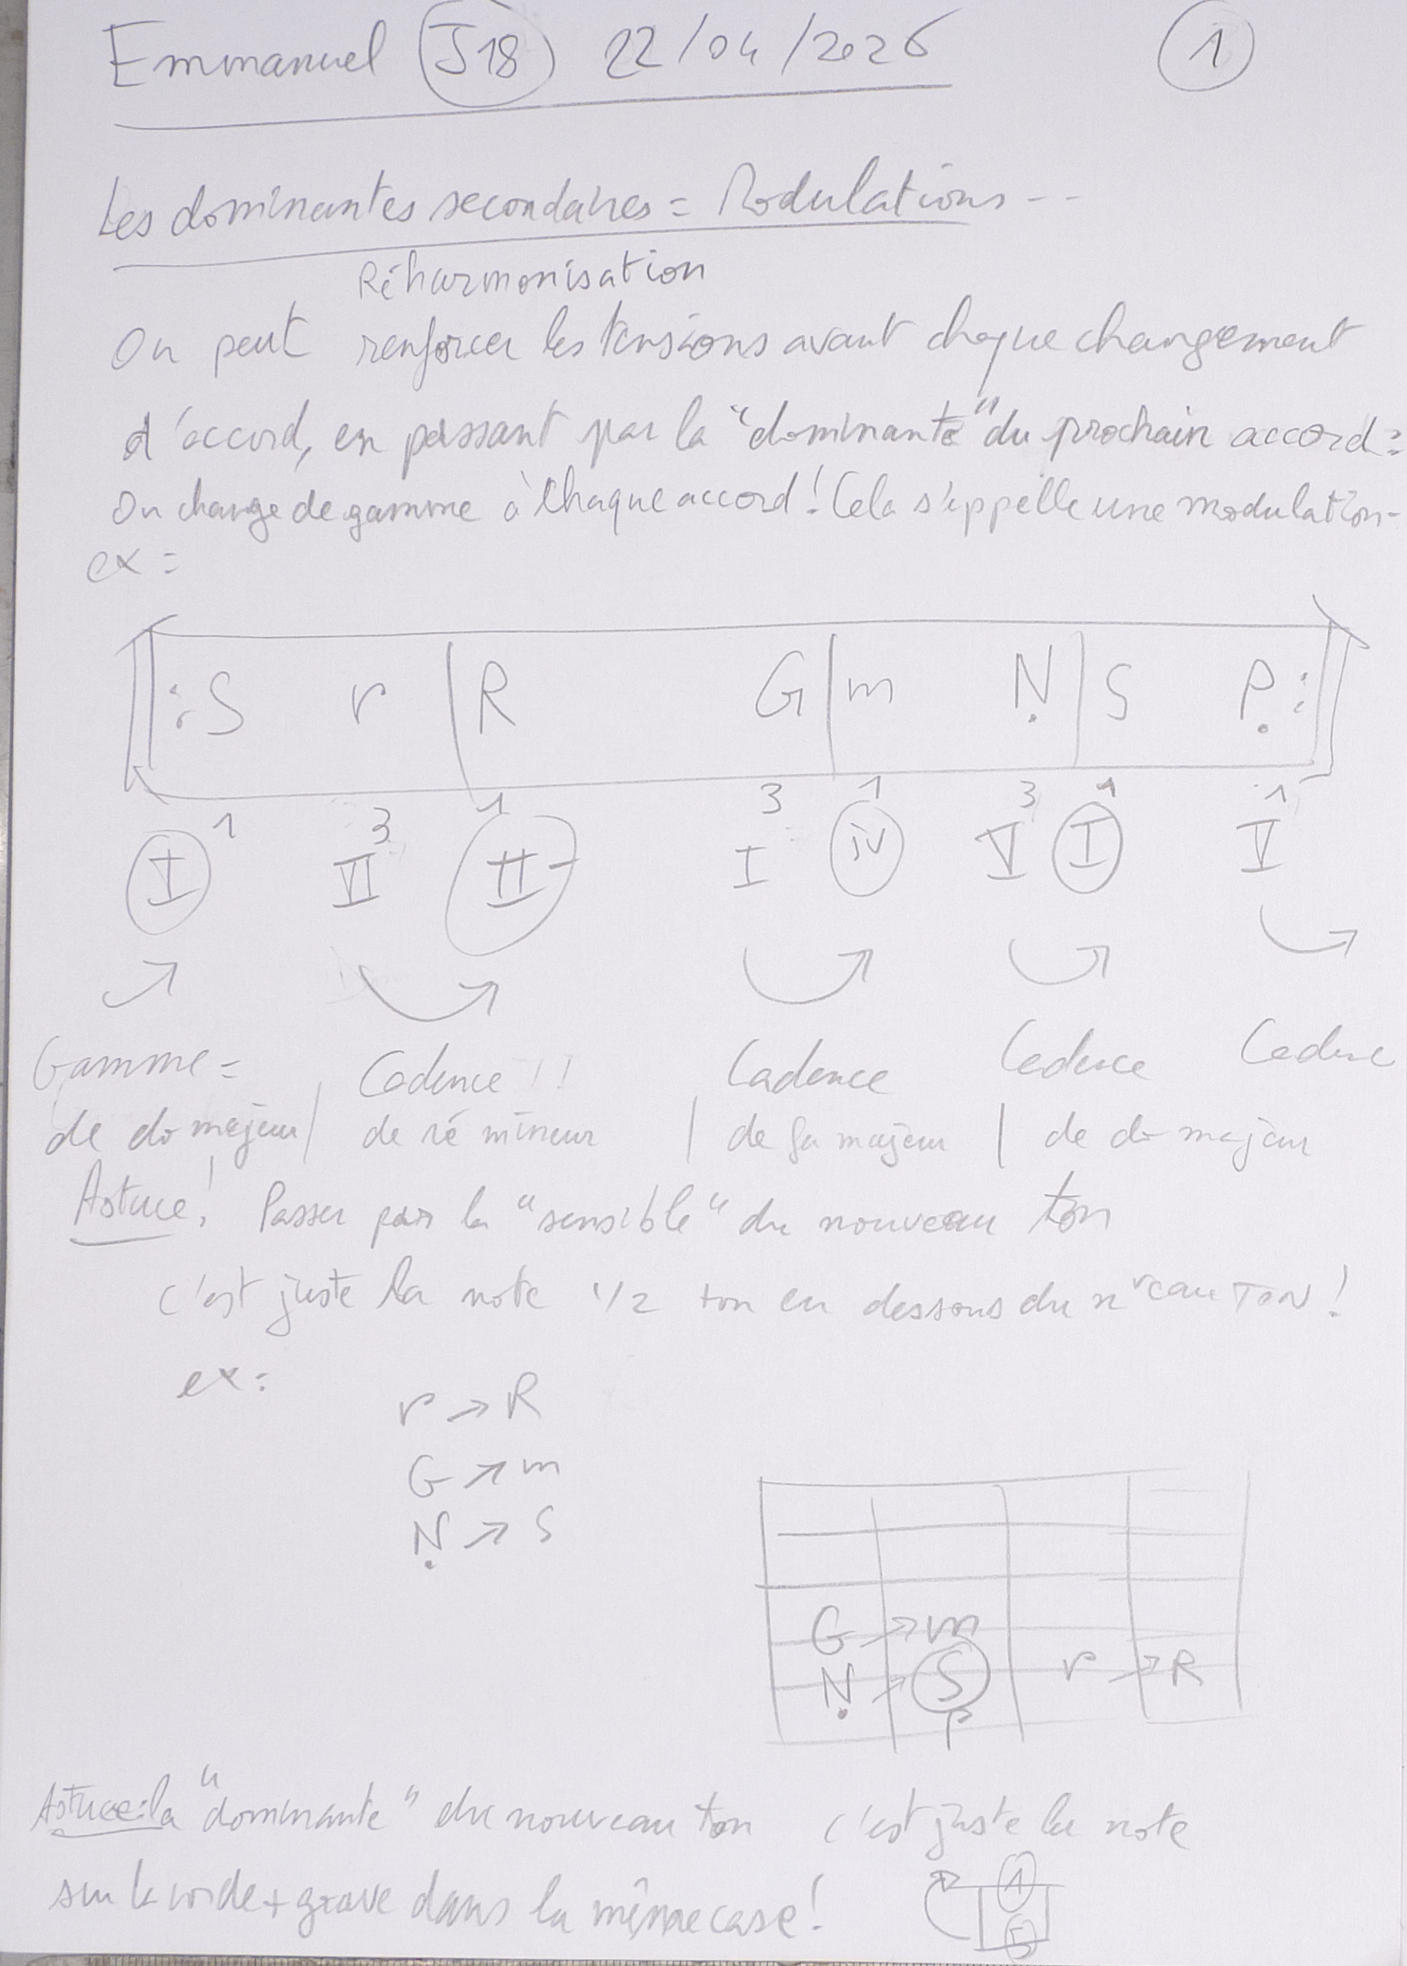 Emmanuel J18 22/04/2026 1
Les dominantes secondaires = Modulations --
Réharmonisation
On peut renforcer les tensions avant chaque changement
d'accord, en passant par la "dominante" du prochain accord :
On change de gamme à chaque accord ! Cela s'appelle une modulation -
ex :
: S r | R G | m N | S P :
1 3 1 3 1 3 1 1
I VI II- I IV V I V
Gamme = Cadence !! Cadence Cadence Cadence
de do majeur | de ré mineur | de fa majeur | de do majeur
Astuce ! Passer par la "sensible" du nouveau ton
c'est juste la note 1/2 ton en dessous du nveau TON !
ex :
r → R
G → m
N → S
G → m
N → S r → R
P
Astuce : la "dominante" du nouveau ton c'est juste la note
sur la corde + grave dans la même case !
1
5